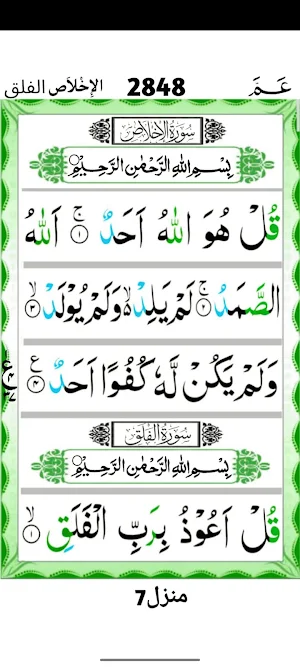 الإخلاص الفلق 2848 عَمَّ
سُوْرَةُ الْاِخْلَاصِ
بِسْمِ اللهِ الرَّحْمٰنِ الرَّحِيْمِ
قُلْ هُوَ اللهُ اَحَدٌ ۚ ﴿۱﴾ اَللهُ
الصَّمَدُ ۚ ﴿۲﴾ لَمْ يَلِدْ ۙ وَلَمْ يُوْلَدْ ۙ ﴿۳﴾
وَلَمْ يَكُنْ لَّهٗ كُفُوًا اَحَدٌ ﴿۴﴾ ع
سُوْرَةُ الْفَلَقِ
بِسْمِ اللهِ الرَّحْمٰنِ الرَّحِيْمِ
قُلْ اَعُوْذُ بِرَبِّ الْفَلَقِ ۙ ﴿۱﴾
منزل7